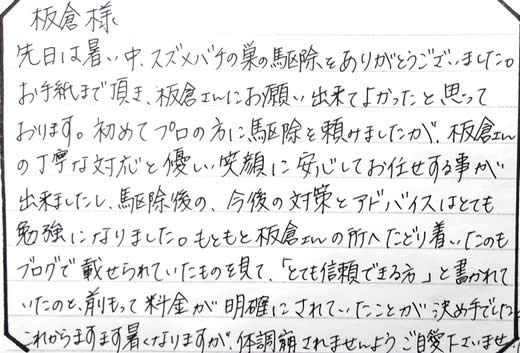 板倉様
先日は暑い中、スズメバチの巣の駆除をありがとうございました。
お手紙まで頂き、板倉さんにお願い出来てよかったと思って
おります。初めてプロの方に駆除を頼みましたが、板倉さん
の丁寧な対応と優しい笑顔に安心してお任せする事が
出来ましたし、駆除後の、今後の対策とアドバイスはとても
勉強になりました。もともと板倉さんの所へたどり着いたのも
ブログで載せられていたものを見て、「とても信頼できる方」と書かれて
いたのと、前もって料金が明確にされていたことが決め手でした。
これからますます暑くなりますが、体調崩されませんようご自愛下さいませ